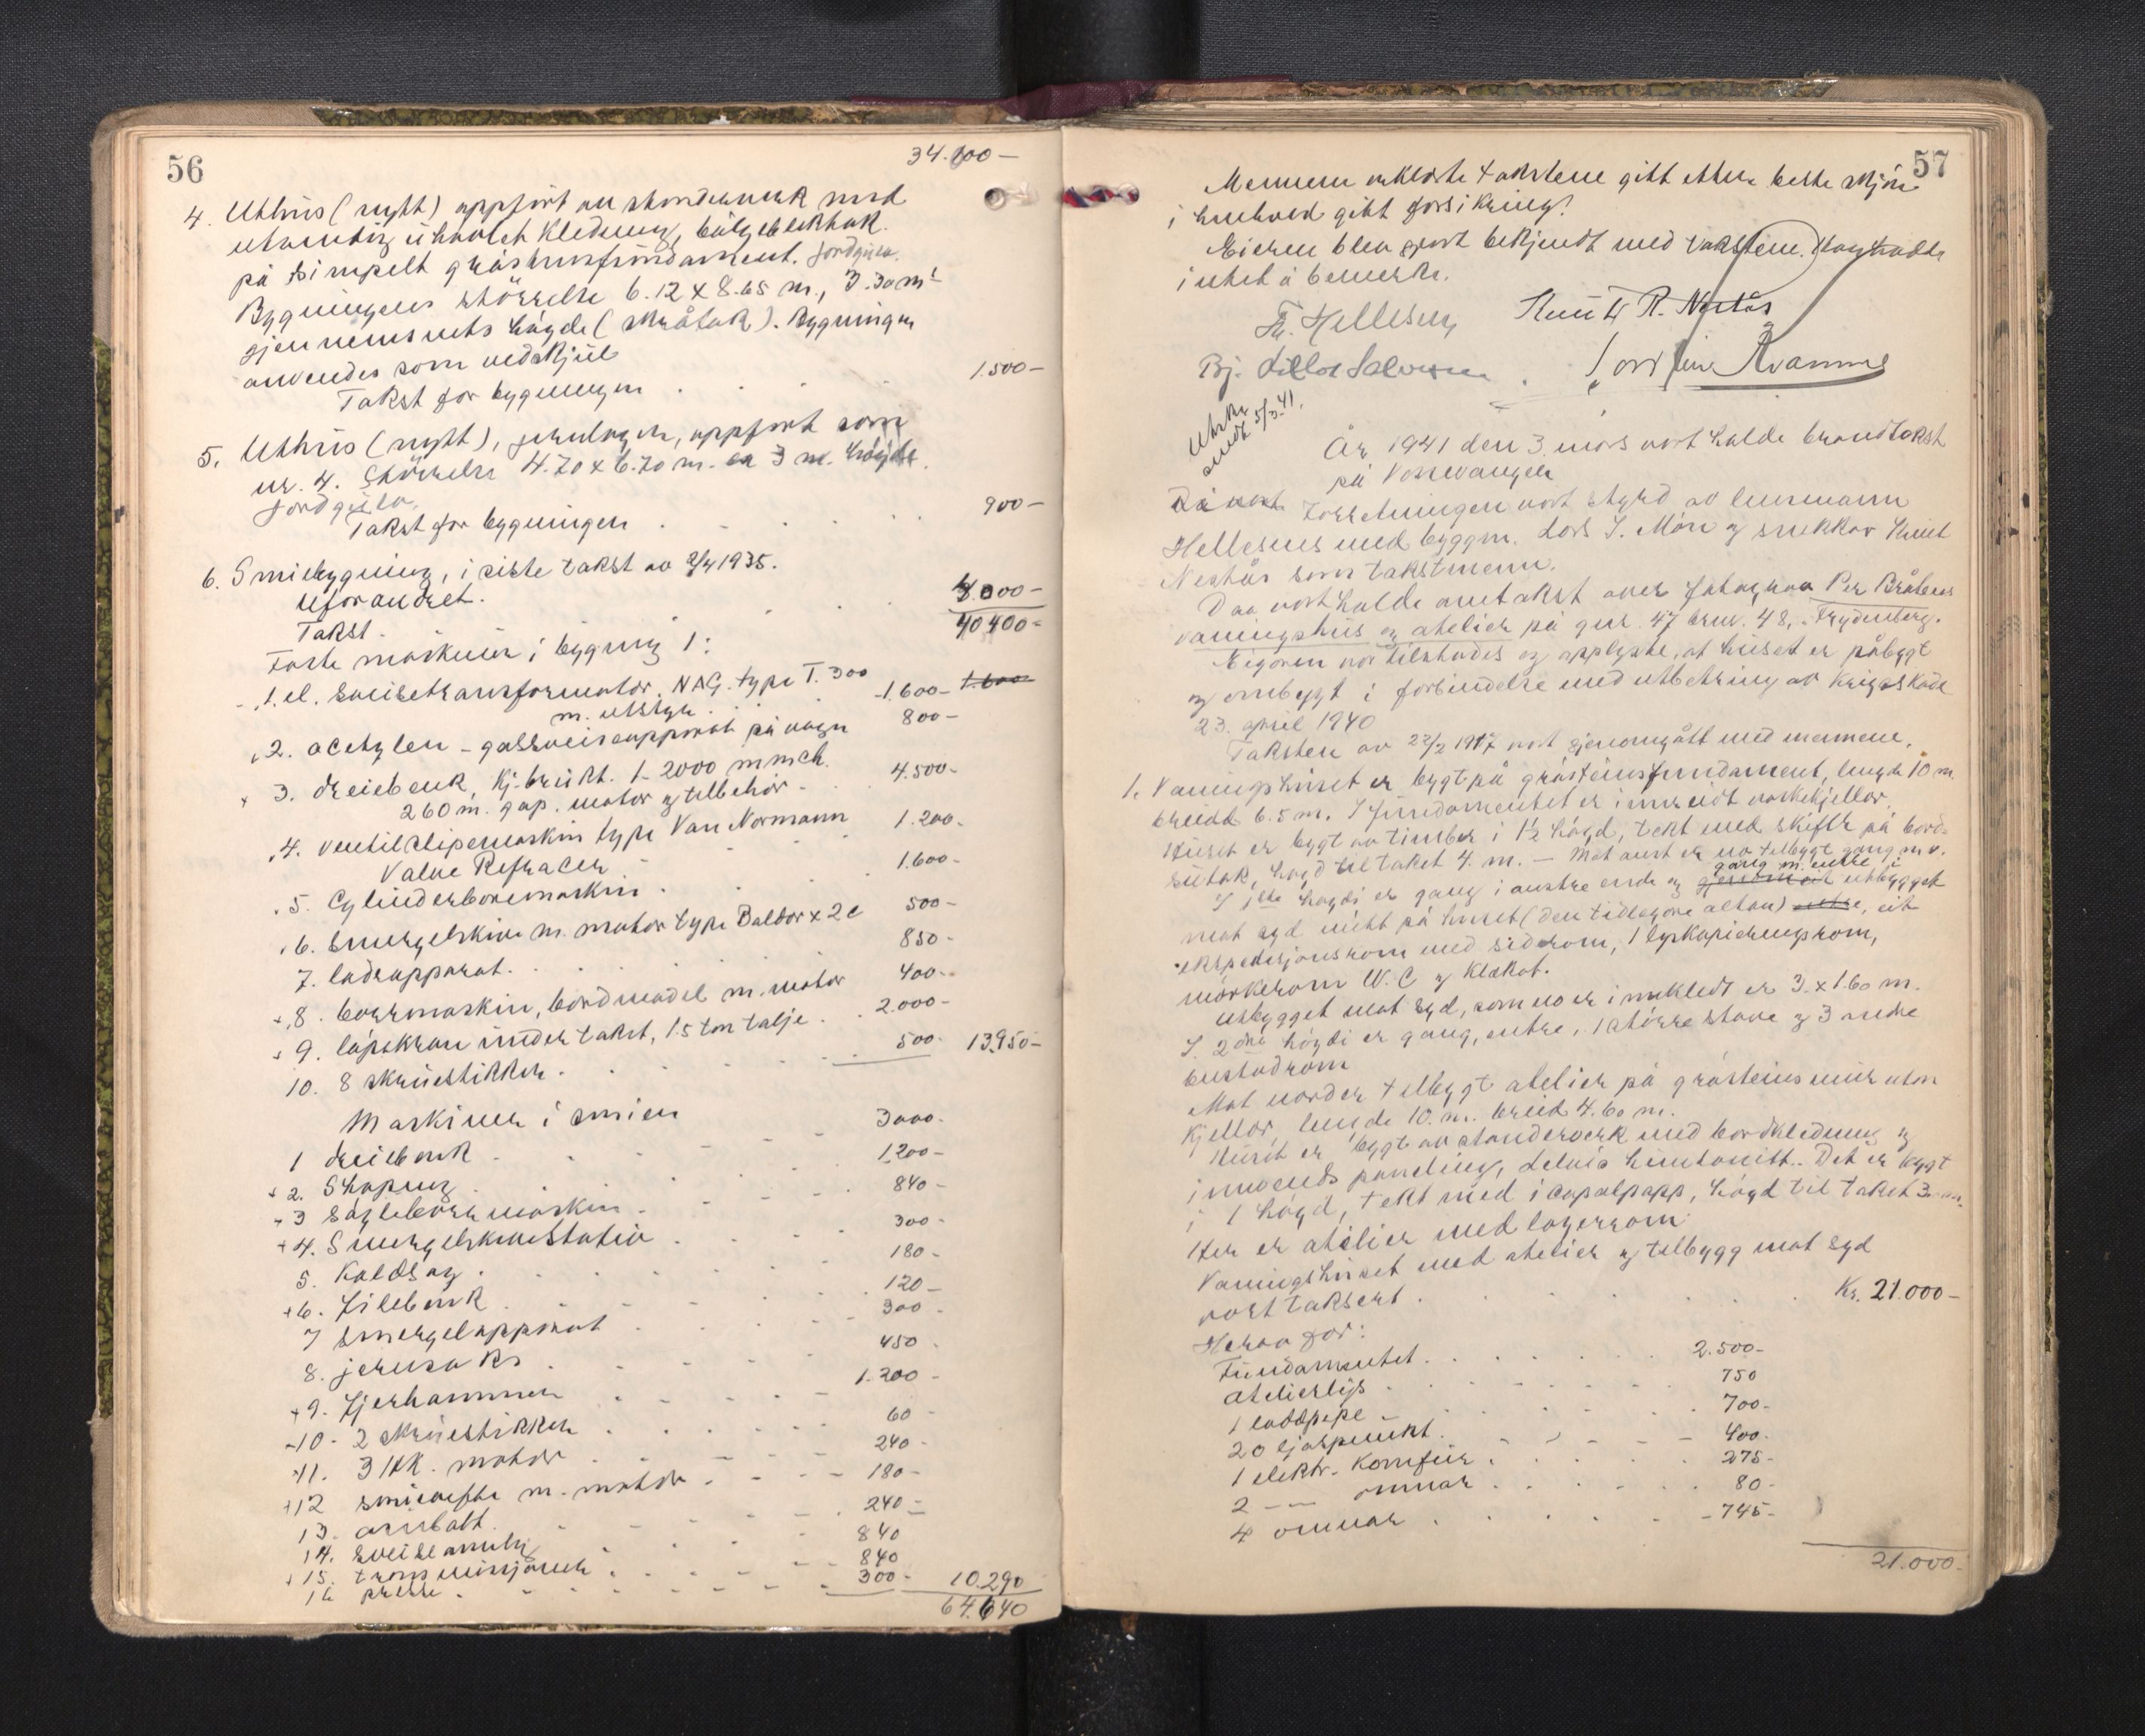 56
34.100 —
4. Uthus (nytt) oppført av stenderverk med
utvendig uhøvlet kledning, bølgeblikktak.
på simpelt gråstensfundament. Jordgulv.
Bygningens størrelse 6.12 x 8.65 m., 3.30 m
gjennemsnits høgde (skråtak). Bygningen
anvendes som vedskjul
Takst for bygningen . . . 1.500 —
5. Uthus (nytt), jernlager, oppført som
nr. 4. Størrelse 4.70 x 6.70 m. ca 3 m. høgde.
Jordgulv.
Takst for bygningen . . . 900 —
6. Smiebygning, i siste takst av 2/4 1935.
Uforandret.
Takst . . . 4.000 —
40400 —
Faste maskiner i bygning 1:
1. el. sveisetransformator NAG. type T. 300
m. utstyr . 1.600 — 1.600
2. acetylen - gassveiseapparat på vogn 800 —
3. dreiebenk, Kj. brukt. 1 - 2000 m mch.
260 m. gap. motor og tilbehør - 4.500 -
4. ventilslipemaskin type Van Normann
Valve Refracer 1.200 -
5. Cylinderboremaskin . 1.600 -
6. Smergelskive m. motor type Baldor x 2 c 500 —
7. ladeapparat . . . 850 -
8. bormaskin, bordmodel m. motor 400 -
9. løpekran under taket, 1.5 ton talje . . 2.000 -
10. 8 skruestikker . . . 500 - 13.950 —
Maskiner i smien
1 dreibenk . . . 3000 -
2. Shaping . . . 1.200 —
3 Søyleboremaskin - 840 -
4. Smergelskivestativ . 300 -
5. Kaldsag . . . 180 -
6. Filebenk . . . 120 —
7 smergelapparat . . 300 -
8. jernsaks . . . 450 -
9. Fjerhammer . . . 1.200 -
10 - 2 skruestikker . . 60 -
11. 3 HK. motor . . 240 -
12 smievifte m. motor . 180 -
13. ambolt . . . 240 —
14. sveiseanlegg . . . 840
15. transmisjoner . . . 840
16 presse . . . 300 - 10.290
64.640
57
Mennene erklærte takstene gitt etter beste skjøn
i henhold gitt forsikring.
Eieren blev gjort bekjendt med takstene. Han hadde
intet å bemerke.
Th. Hellesnes Knut R. Nestås
Kvamme
Utskr.
sendt 5/3.41.
År 1941 den 3. mars vart halde brandtakst
på Vossevangen
Forretningen vart styrd av lensmann
Hellesnes med byggm. Lars S. Møn og snekkar Knut
Nestås som takstmenn.
Daa vart halde omtakst over fotograf Per Bråtens
vaningshus og atelier på gnr. 47 brnr. 48, Frydenberg.
Eigaren var tilstades og opplyste, at huset er påbygt
og ombygt i forbindelse med utbetring av krigsskade
23. april 1940
Taksten av 22/2 1917 vart gjenomgått med mennene.
1. Vaningshuset er bygt på gråsteinsfundament, lengde 10 m.
breidd 6.5 m. I fundamentet er innreidt vaskekjellar.
Huset er bygt av timber i 1½ høgd, tekt med skifer på bord-
sutak, høgd til taket 4. m. — Mot aust er no tilbygt gang m. v.
gang m. entre i
I 1ste høgdi er gang i austre ende og utbygget
mot syd midt på huset (den tidlegare altan) entre, eit
ekspedisjonsrom med siderom, 1 lyskopieringsrom,
mörkerom W. C og kleskot.
Utbygget mot syd, som no er innkledt er 3. x 1.60 m.
I 2dre høgdi er gang, entre, 1 större stove og 3 andre
bustadrom
Mot norder tilbygt atelier på gråsteinsmur uten
kjellar, lengde 10. m. breid 4.60 m.
Huset er bygt av stenderverk med bordkledning og
innvends paneling, delvis huntonitt. Det er bygt
i 1 høgd, tekt med icopalpapp, høgd til taket 3. m.
Her er atelier med lagerrom
Vaningshuset med atelier og tilbygg mot syd
vart taksert . . . Kr. 21.000 —
Herav for:
Fundamentet . . . 2.500 —
atelierlys . . . 750
1 loddpipe - . . . 700 -
20 ljospunkt . . . 400 -
1 elektr. komfur . . . 275 -
2 — — omnar . . . 80 -
4 omnar . . . 745 -
21.000 -